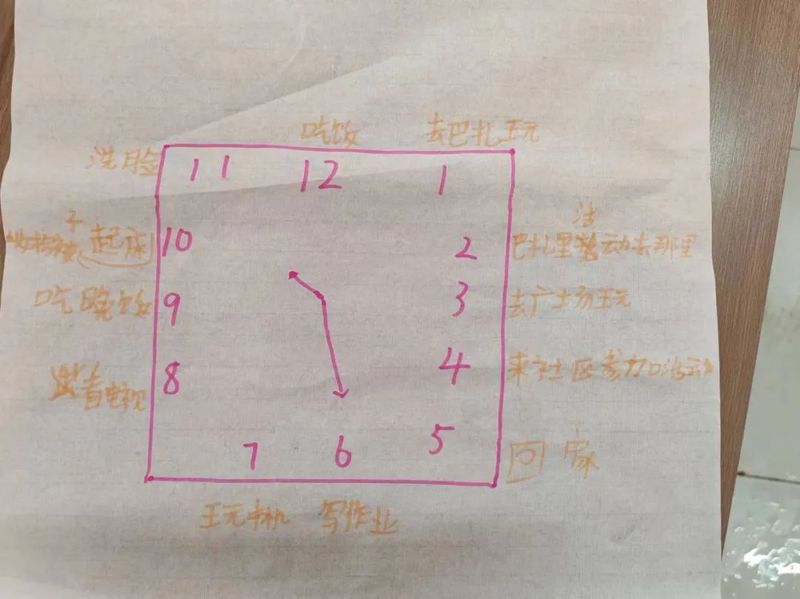 吃饭 去巴扎玩
洗脸 11 12 1
起床 10 2 巴扎里 活动去那里
吃晚饭 9 3 去广场玩
看电视 8 4 来社区参加活动
7 6 5 回家
玩手机 写作业